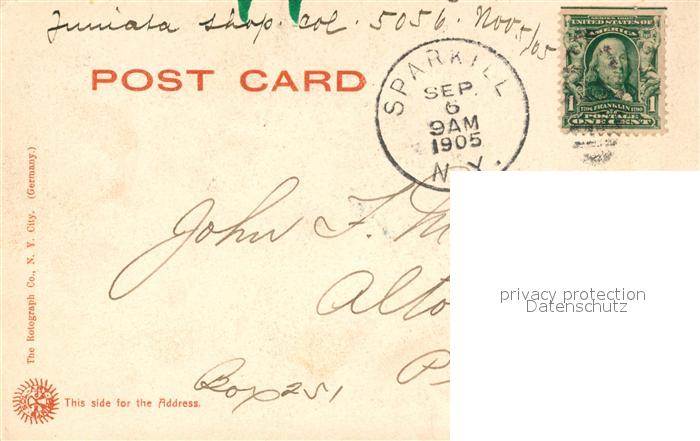 Juniata shop. col. 5056. Nov 5/05
POST CARD
SPARKILL
SEP.
6
9AM
1905
N.Y.
SERIES 1902
UNITED STATES OF
AMERICA
1 FRANKLIN 1
POSTAGE
ONE CENT
John F. M
Alto
Box 251
The Rotograph Co., N. Y. City. (Germany.)
This side for the Address.
privacy protection
Datenschutz